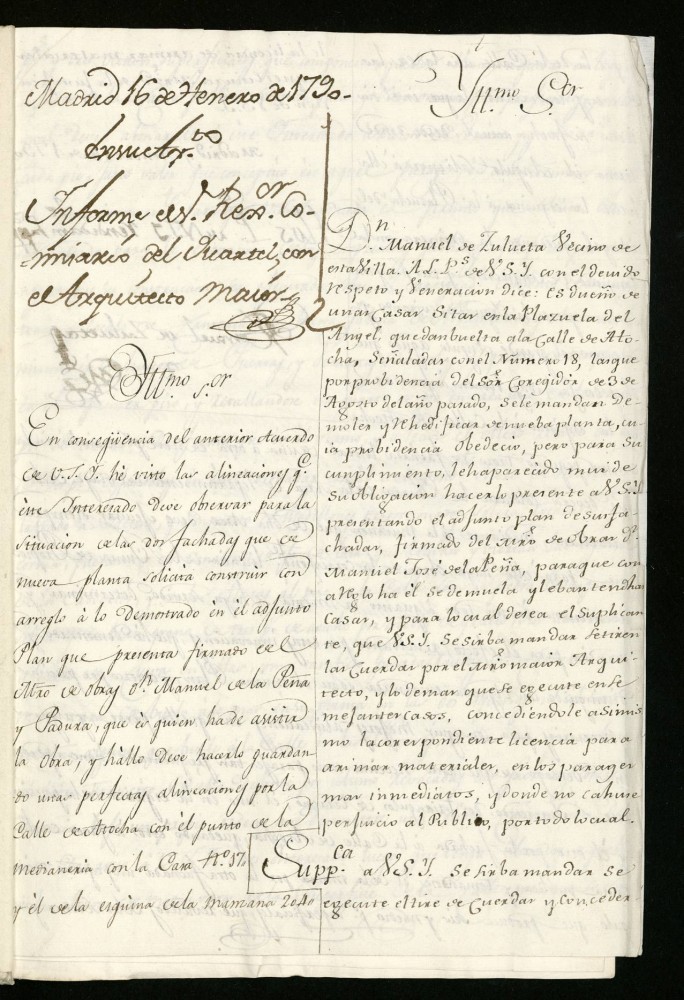 Madrid 16 de Henero de 1790.
En su Ay.to
Informe el S.r Rexor. Co-
misario del Quartel, con
el Arquitecto Maior
Yttmo S.or
En conseqüencia del anterior Acuerdo
de V.S.Y. hè visto las alineaciones q.e
este Interesado deve observar para la
situacion de las dos fachadas que de
nueva planta solicita construir con
arreglo à lo Demostrado en èl adjunto
Plan que presenta firmado de el
Mtro de obras D.n Manuel de la Peña
y Padura, que ès quien ha de asistir
la obra, y hàllo deve hacerlo guardan-
do unas perfectas alineaciones por la
Calle de Atocha con èl punto de la
medianeria con la Casa n.o 17
y èl de la esquina de la manzana 2040
Yttmo S.or
D.n Manuel de Zulueta Vecino de
esta Villa. A L. P.s de V.S.Y. con el devido
respeto y Veneracion dice: Es dueño de
unas Casas sitas en la Plazuela del
Angel, que dan buelta a la Calle de Ato-
cha, Señaladas con el Numero 18, las que
por probidencia del Sõr Corregidor de 3 de
Agosto del año pasado, se le mandan De-
moler y Rehedificar de nueba planta, cu-
ia probidencia obedeciò, pero para su
cumplimiento, le ha parecido mui de
su obligacion hacerlo presente a V.S.Y.
presentando el adjunto plan de sus fa-
chadas, firmado del Mrõ de Obras D.n
Manuel José de la Peña, para que con
arreglo ha èl se demuela y lebanten dhas
casas, y para lo cual desea el Suplican
te, que V.S.Y. se sirba mandar se tiren
las Cuerdas por el Mrõ maior Arqui-
tecto, y lo demas que se egecute en se
mejantes casos, concediendole asimis
mo la corespondiente licencia para
arimar materiales, en los parages
mas inmediatos, y donde no cause
perjuicio al Publico, por todo lo cual.
Supp.ca a V.S.Y. se sirba mandar se
egecute el tire de Cuerdas y conceder-